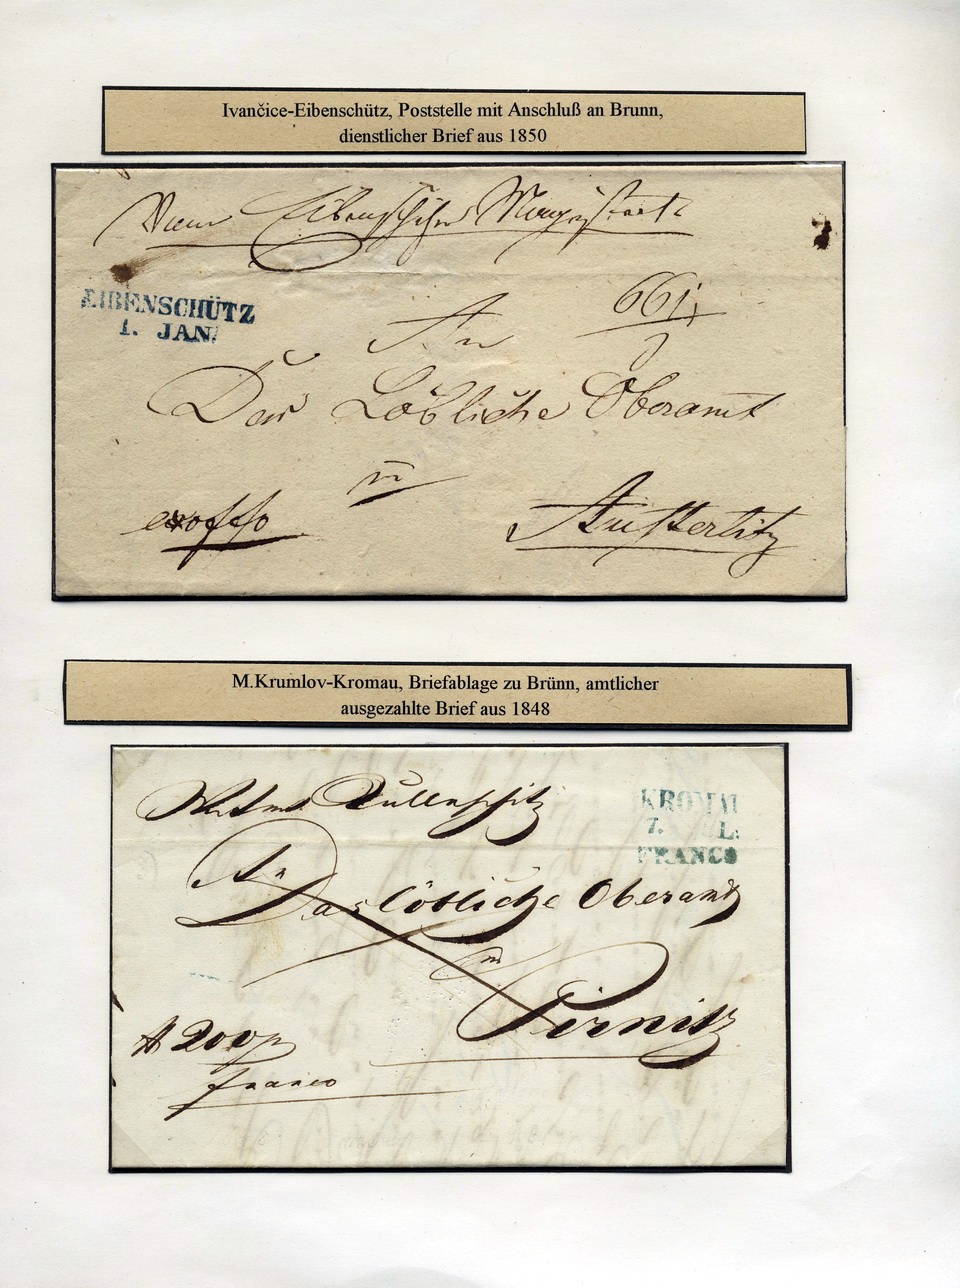 Ivančice-Eibenschütz, Poststelle mit Anschluß an Brunn,
dienstlicher Brief aus 1850
Vom Eibenschitzer Magistrate
EIBENSCHÜTZ
1. JAN.
An
Das Löbliche Oberamt
in
exoffo
Austerlitz
M.Krumlov-Kromau, Briefablage zu Brünn, amtlicher
ausgezahlte Brief aus 1848
KROMAU
7. L:
FRANCO
An
Das löbliche Oberamt
in
Pirnitz
franco